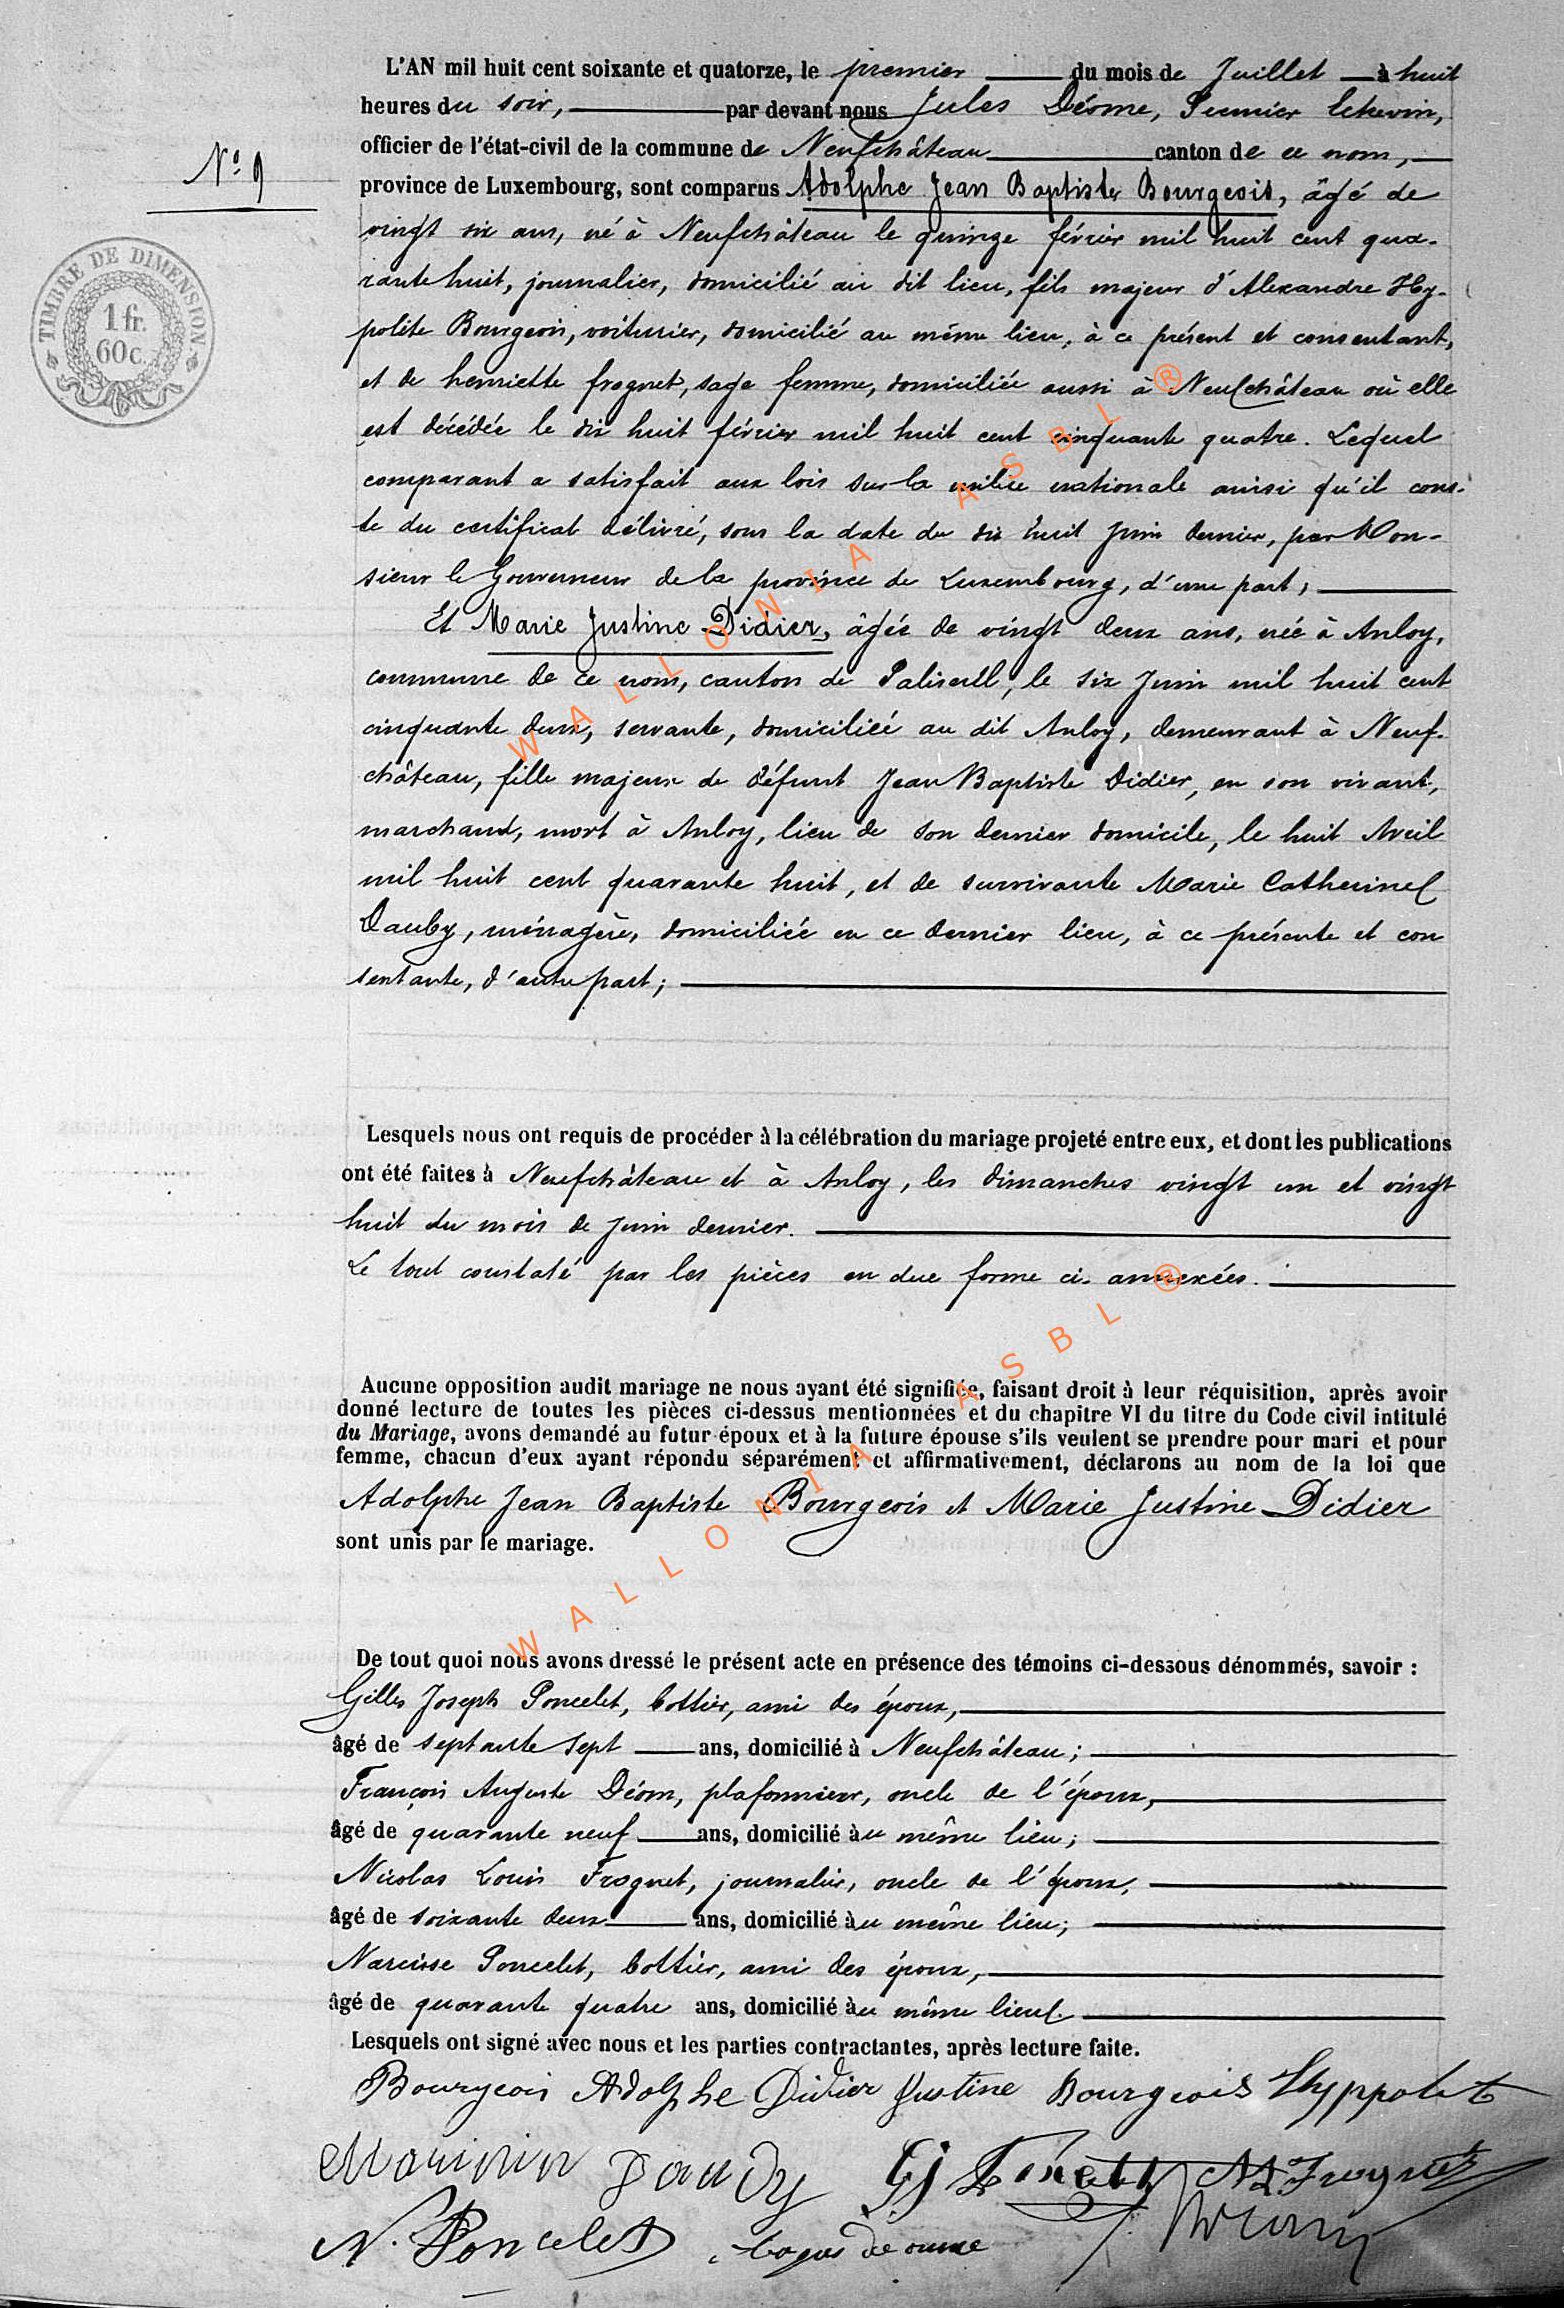 L'AN mil huit cent soixante et quatorze, le premier du mois de Juillet à huit
heures du soir, par devant nous Jules Déome, Premier Echevin,
officier de l'état-civil de la commune de Neufchâteau canton de ce nom,
N° 9
province de Luxembourg, sont comparus Adolphe Jean Baptiste Bourgeois, âgé de
vingt six ans, né à Neufchâteau le quinze février mil huit cent qua-
rante huit, journalier, domicilié au dit lieu, fils majeur d'Alexandre Hy-
polite Bourgeois, voiturier, domicilié au même lieu, à ce présent et consentant,
et de henriette frognet, sage femme, domiciliée aussi à Neufchâteau où elle
est décédée le dix huit février mil huit cent cinquante quatre. Lequel
comparant a satisfait aux lois sur la milice nationale ainsi qu'il cons-
te du certificat délivré, sous la date du dix huit Juin dernier, par Mon-
sieur le Gouverneur de la province de Luxembourg, d'une part,
Et Marie Justine Didier, âgée de vingt deux ans, née à Anloy,
commune de ce nom, canton de Paliseul, le six Juin mil huit cent
cinquante deux, servante, domiciliée au dit Anloy, demeurant à Neuf-
château, fille majeure de défunt Jean Baptiste Didier, en son vivant,
marchand, mort à Anloy, lieu de son dernier domicile, le huit Avril
mil huit cent quarante huit, et de survivante Marie Catherine
Dauby, ménagère, domiciliée en ce dernier lieu, à ce présente et con
sentante, d'autre part;
TIMBRE DE DIMENSION
1 fr.
60 c.
Lesquels nous ont requis de procéder à la célébration du mariage projeté entre eux, et dont les publications
ont été faites à Neufchâteau et à Anloy, les dimanches vingt un et vingt
huit du mois de Juin dernier.
Le tout constaté par les pièces en due forme ci-annexées.
Aucune opposition audit mariage ne nous ayant été signifiée, faisant droit à leur réquisition, après avoir
donné lecture de toutes les pièces ci-dessus mentionnées et du chapitre VI du titre du Code civil intitulé
du Mariage, avons demandé au futur époux et à la future épouse s'ils veulent se prendre pour mari et pour
femme, chacun d'eux ayant répondu séparément et affirmativement, déclarons au nom de la loi que
Adolphe Jean Baptiste Bourgeois et Marie Justine Didier
sont unis par le mariage.
De tout quoi nous avons dressé le présent acte en présence des témoins ci-dessous dénommés, savoir :
Gilles Joseph Poncelet, bottier, ami des époux,
âgé de septante sept ans, domicilié à Neufchâteau;
François Auguste Déom, plafonneur, oncle de l'époux,
âgé de quarante neuf ans, domicilié au même lieu;
Nicolas Louis Frognet, journalier, oncle de l'époux,
âgé de soixante deux ans, domicilié au même lieu;
Narcisse Poncelet, bottier, ami des époux,
âgé de quarante quatre ans, domicilié au même lieu.
Lesquels ont signé avec nous et les parties contractantes, après lecture faite.
Bourgeois Adolphe Didier Justine Bourgeois Hyppolit
Dauby NL Frognet
N. Poncelet
WALLONIA ASBL ®
WALLONIA ASBL ®